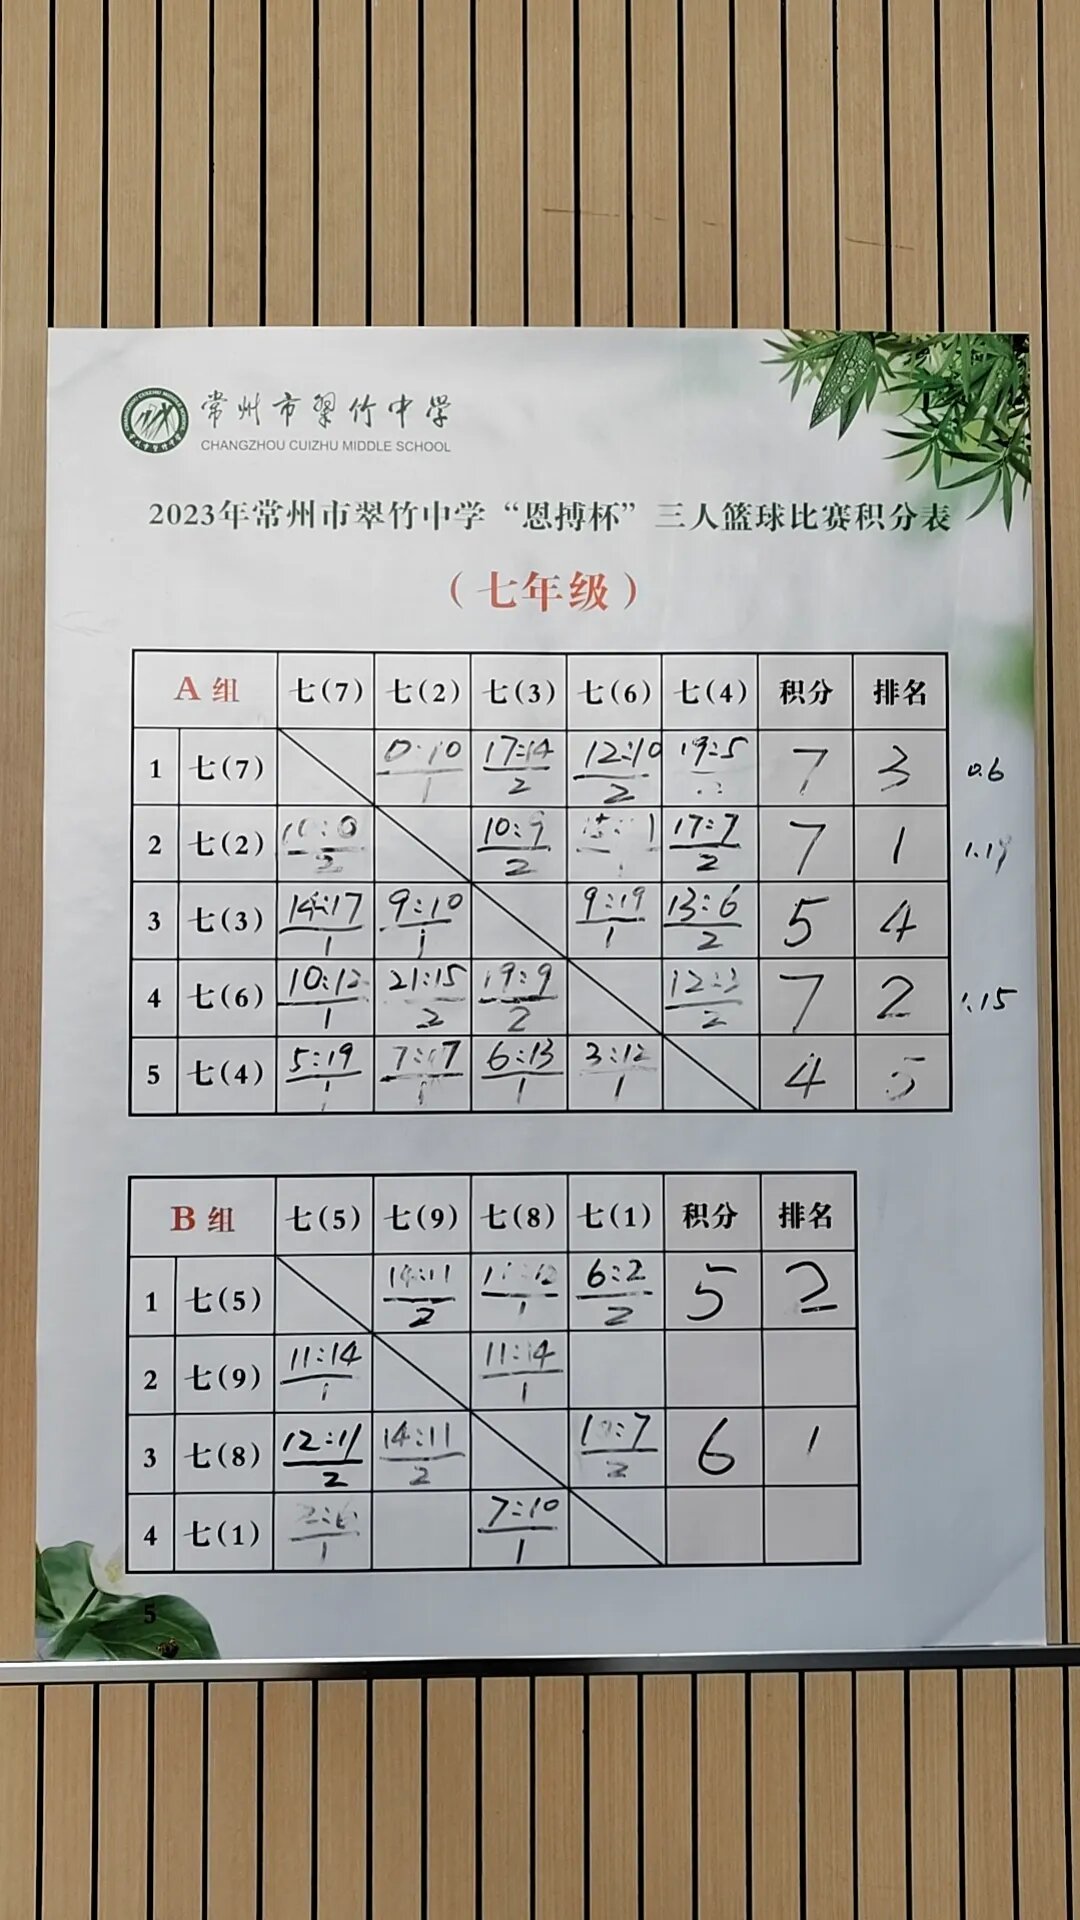 常州市翠竹中学
CHANGZHOU CUIZHU MIDDLE SCHOOL
2023年常州市翠竹中学“恩搏杯”三人篮球比赛积分表
（七年级）
A 组 七(7) 七(2) 七(3) 七(6) 七(4) 积分 排名
1 七(7) 17:14 2 12:10 2 19:5 7 3 0.6
2 七(2) 10:9 2 17:7 2 7 1 1.19
3 七(3) 14:17 1 9:10 1 9:19 1 13:6 2 5 4
4 七(6) 10:12 1 21:15 2 19:9 2 12:3 2 7 2 1.15
5 七(4) 5:19 1 7:17 1 6:13 1 3:12 1 4 5
B 组 七(5) 七(9) 七(8) 七(1) 积分 排名
1 七(5) 14:11 2 11:12 1 6:2 2 5 2
2 七(9) 11:14 1 11:14 1
3 七(8) 12:11 2 14:11 2 10:7 2 6 1
4 七(1) 2:6 1 7:10 1
5